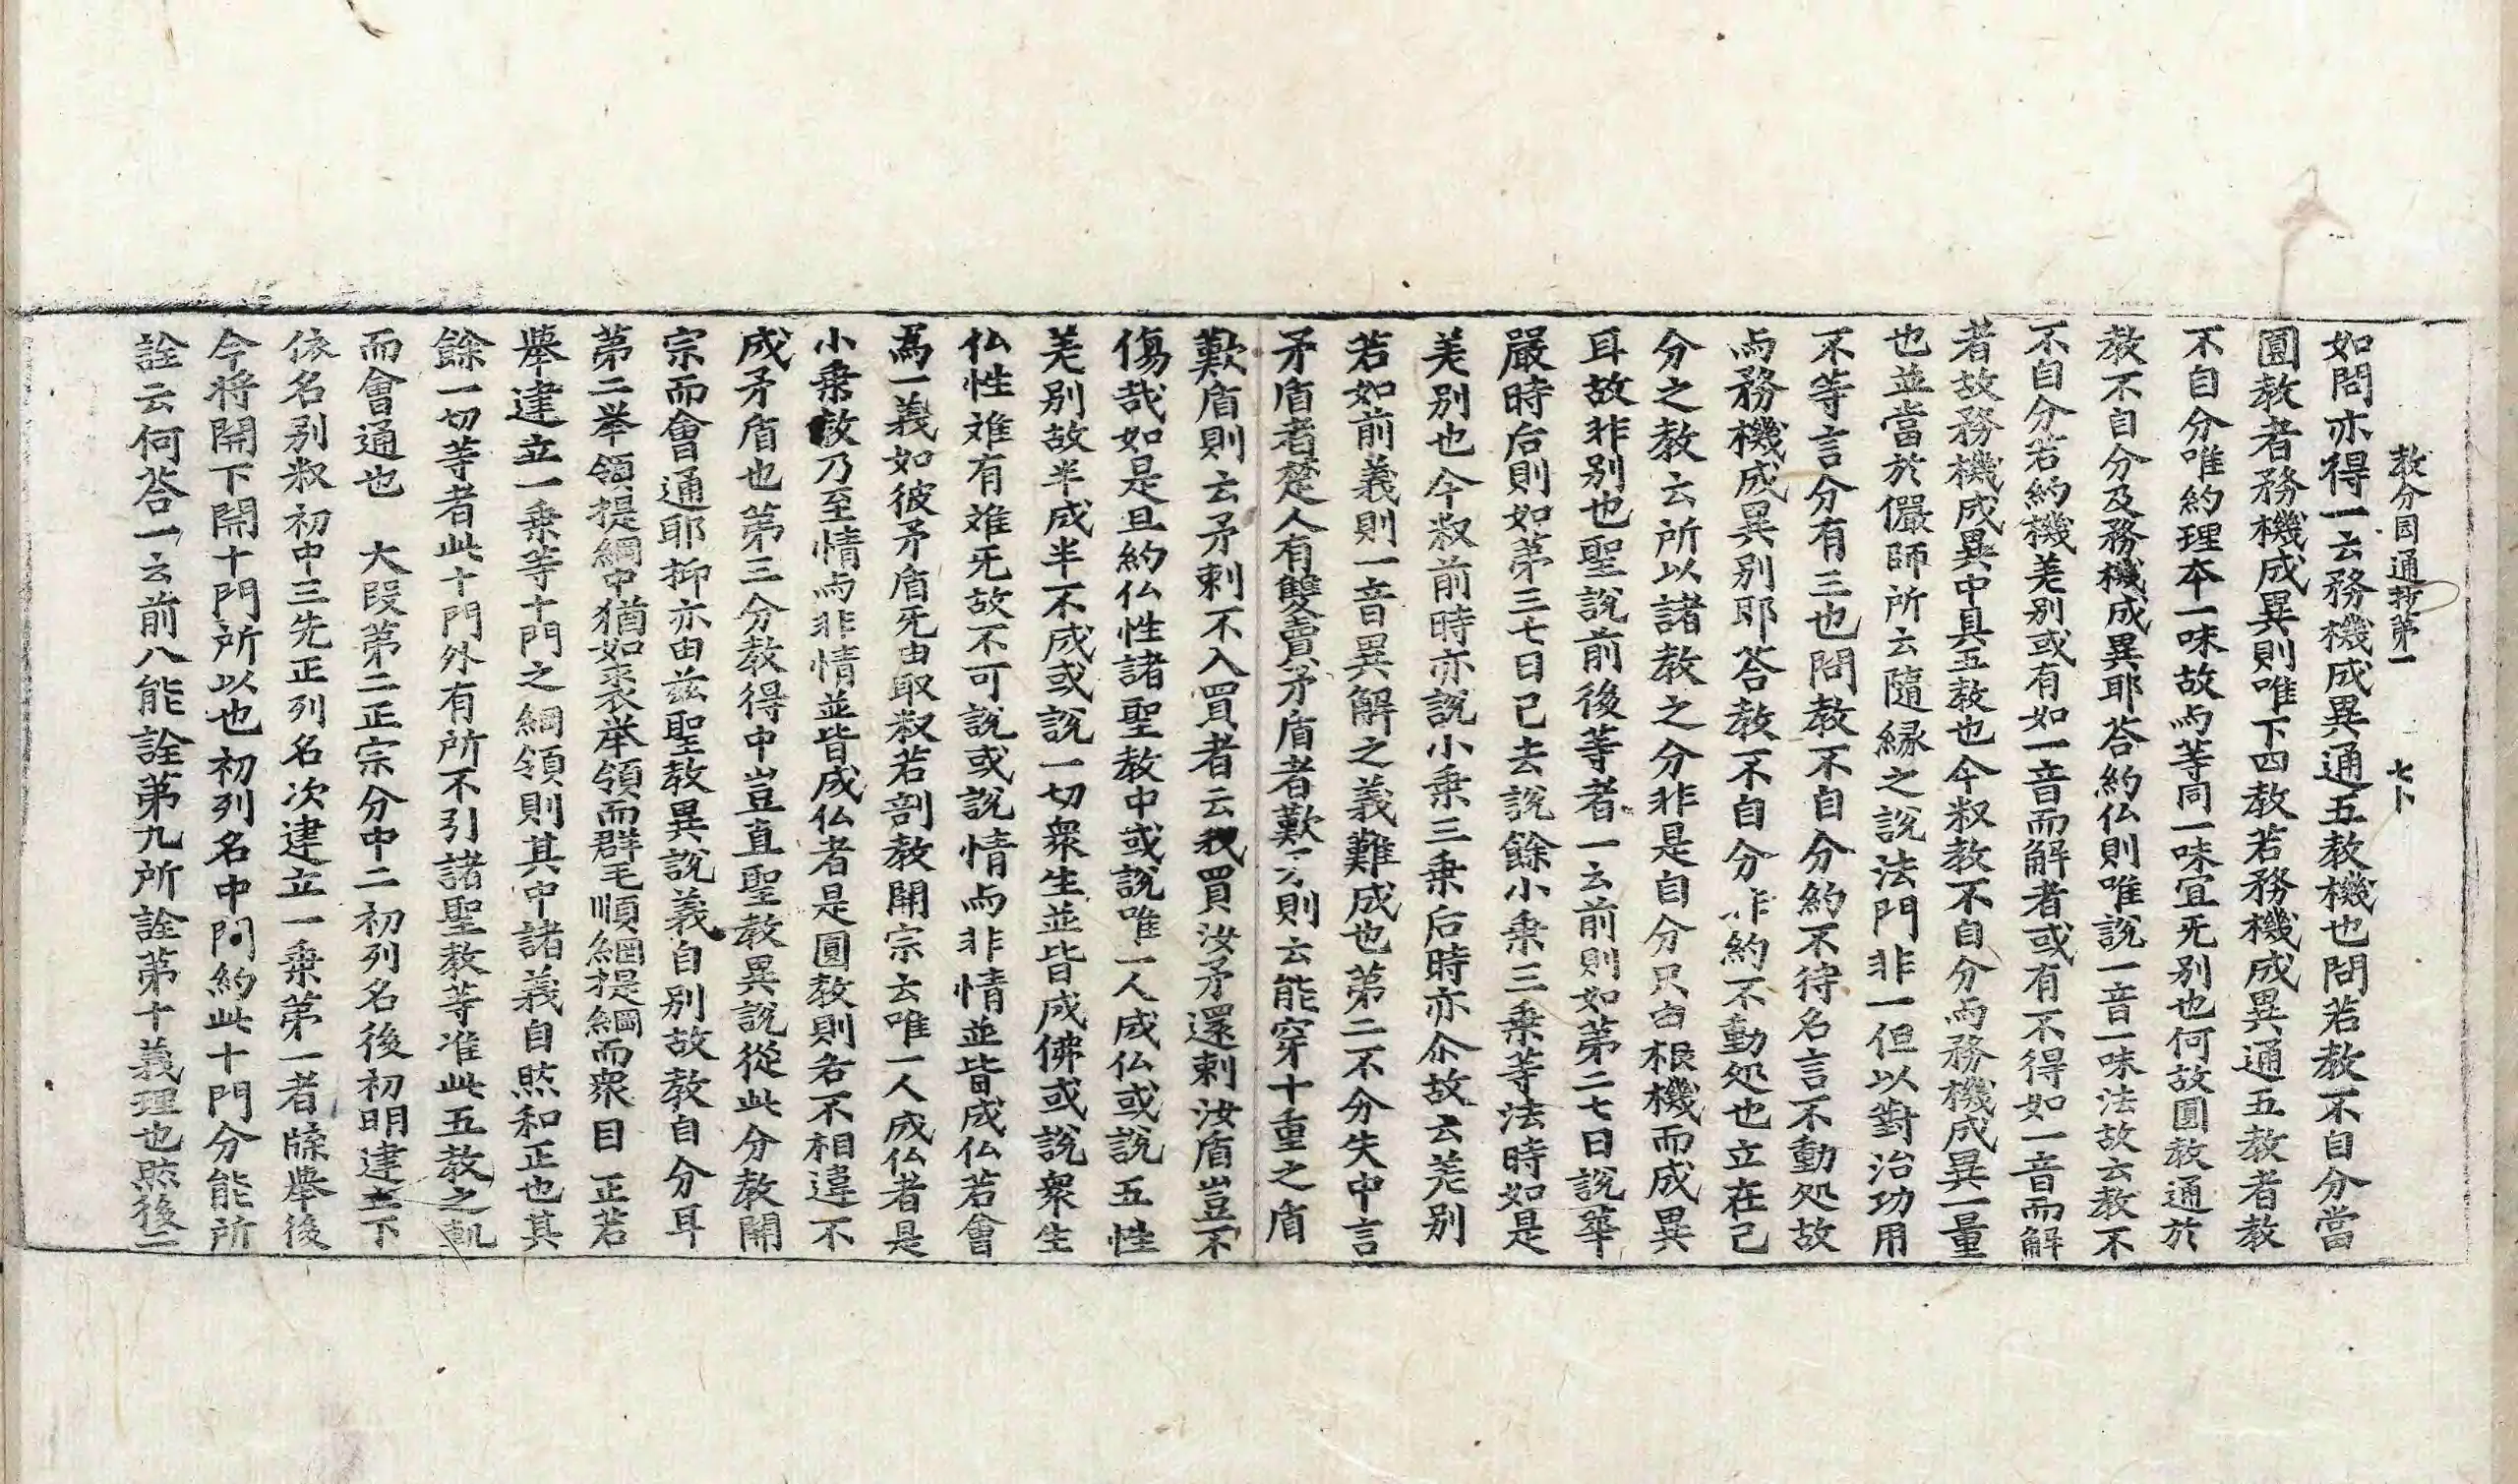 教分圓通抄第一 七卜
如問亦得一云務機成異通五教機也問若教不自分當
圓教者務機成異則唯下四教若務機成異通五教者教
不自分唯約理夲一味故而等同一味宜旡別也何故圓教通於
教不自分及務機成異耶荅約仏則唯說一音一味法故云教不
不自分若約機羙别或有如一音而解者或有不得如一音而解
者故務機成異中具五教也今叙教不自分而務機成異一量
也並當於儼師所云隨緣之說法門非一但以對治功用
不等言分有三也問教不自分約不待名言不動処故
而務機成異別耶荅教不自分非約不動処也立在己
分之教云所以諸教之分非是自分只由根機而成異
耳故非别也聖說前後等者一云前則如第二七日說華
嚴時后則如第三七日已去說餘小乗三乗等法時如是
羙别也今叙前時亦說小乗三乗后時亦尒故云羙别
若如前義則一音異解之義難成也第二不分失中言
矛盾者楚人有雙賣矛盾者歎矛則云能穿十重之盾
歎盾則云矛刺不入買者云我買汝矛還刺汝盾豈不
傷哉如是且約仏性諸聖教中或說唯一人成仏或說五性
羙别故半成半不成或說一切衆生並皆成佛或說衆生
仏性难有难旡故不可說或說情而非情並皆成仏若會
爲一義如彼矛盾旡由取叙若剖教開宗云唯一人成仏者是
小乗教乃至情而非情並皆成仏者是圓教則各不相違不
成矛盾也第三分教得中豈直聖教異說從此分教開
宗而會通耶抑亦由茲聖教異說義自别故教自分耳
第二举領提綱中猶如裘举領而群毛順綱提綱而衆目正若
舉建立一乗等十門之綱領則其中諸義自然和正也其
餘一切等者此十門外有所不引諸聖教等准此五教之軌
而會通也 大段第二正宗分中二初列名後初明建立下
依名别叙初中三先正列名次建立一乗第一者牒舉後
今将開下開十門所以也初列名中問約此十門分能所
詮云何荅一云前八能詮第九所詮第十義理也然後二